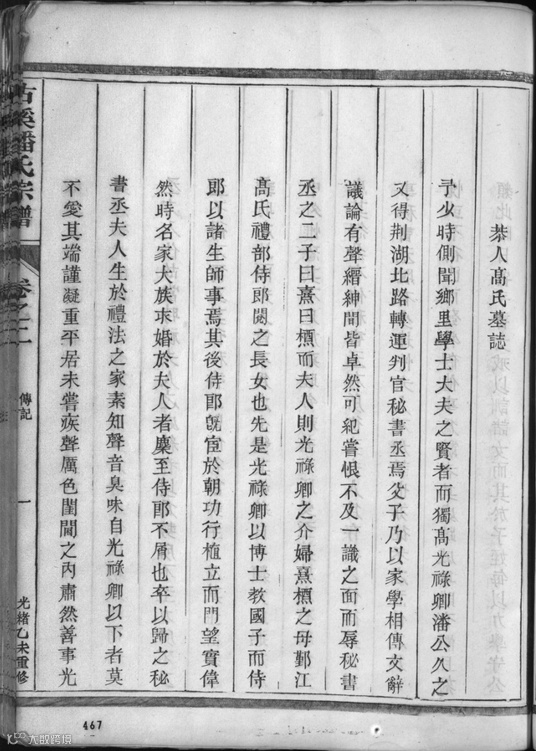 恭人髙氏墓誌
予少時側聞鄉里學士大夫之賢者而獨髙光祿卿潘公久之
又得荆湖北路轉運判官秘書丞焉父子乃以家學相傳文辭
議論有聲縉紳間皆卓然可紀嘗恨不及一識之面而辱秘書
丞之二子曰熹曰櫄而夫人則光祿卿之介婦熹櫄之母鄞江
髙氏禮部侍郎閌之長女也先是光祿卿以博士教國子而侍
郎以諸生師事焉其後侍郎旣宦於朝功行植立而門望實偉
然時名家大族求婚於夫人者麇至侍郎不屑也卒以歸之秘
書丞夫人生於禮法之家素知聲音臭味自光祿卿以下者莫
不愛其端謹凝重平居未嘗疾聲厲色閨閫之內肅然善事光
古溪潘氏宗譜
卷之二
傳記
一
光緒乙未重修
467
大數跨境